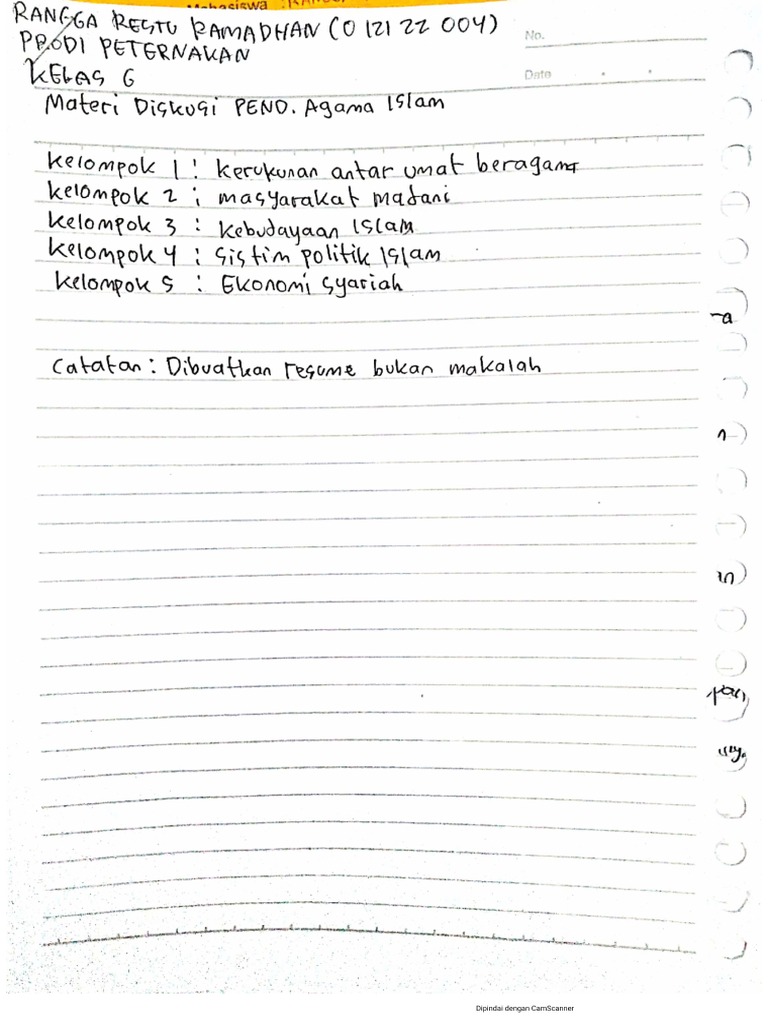 Mahasiswa :
RANGGA RESTU RAMADHAN (O 121 22 004)
No.
PRODI PETERNAKAN
KELAS G
Date
Materi Diskusi PEND. Agama Islam
Kelompok 1 : Kerukunan antar umat beragama
Kelompok 2 : masyarakat madani
Kelompok 3 : Kebudayaan Islam
Kelompok 4 : Sistim politik Islam
Kelompok 5 : Ekonomi Syariah
Catatan : Dibuatkan resume bukan makalah
Dipindai dengan CamScanner